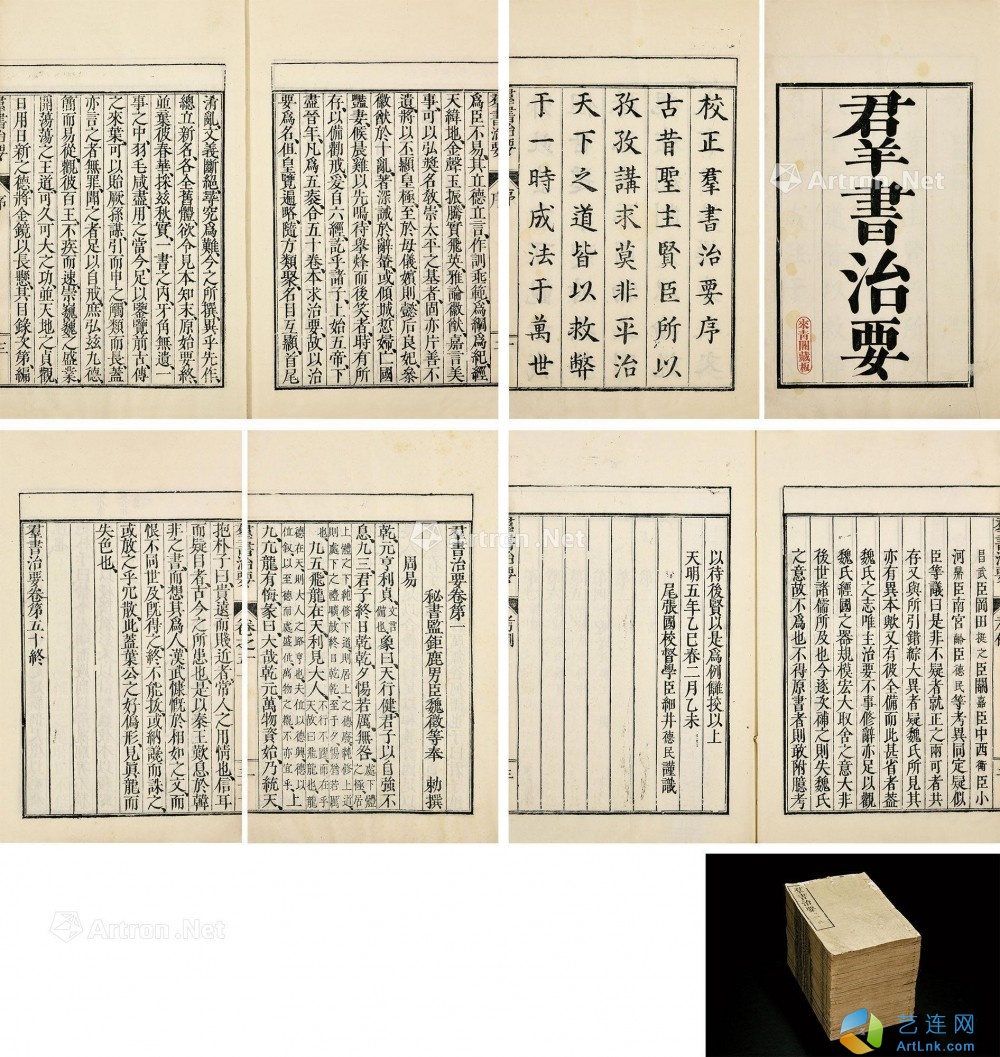 羣書治要
來青閣藏板
校正羣書治要序
古昔聖主賢臣所以
孜孜講求莫非平治
天下之道皆以救弊
于一時成法于萬世
羣書治要 序
爲臣不易其立德立言作訓乖範爲綱爲紀經
天緯地金聲玉振騰實飛英雅論徽猷嘉言美
事可以弘獎名敎崇太平之基者固亦片善不
遺將以丕顯皇極至於母儀嬪則懿后良妃參
徽猷於十亂著深誡於辭輦或傾城悊婦亡國
豔妻候晨雞以先鳴待舉烽而後笑者時有所
存以備勸戒爰自六經訖乎諸子上始五帝下
盡晉年凡爲五袠合五十卷本求治要故以治
要爲名但皇覽遍略隨方類聚名目互顯首尾
淆亂文義斷絕尋究爲難今之所撰異乎先作
總立新名各全舊體欲令見本知末原始要終
並棄彼春華採茲秋實一書之內牙角無遺一
事之中羽毛咸盡用之當今足以鑒覽前古傳
之來葉可以貽厥孫謀引而申之觸類而長蓋
亦言之者無罪聞之者足以自戒庶弘茲九德
簡而易從觀彼百王不疾而速崇巍巍之盛業
開蕩蕩之王道可久可大之功並天地之貞觀
日用日新之德將金鏡以長懸其目錄次第編
羣書治要 序 三
昌武臣岡田挺之臣關嘉臣中西衞臣小
河鼎臣南宮齡臣德民等考異同定疑似
臣等議曰是非不疑者就正之兩可者共
存又與所引錯綜大異者疑魏氏所見其
亦有異本歟又有彼全備而此甚省者蓋
魏氏之志唯主治要不事修辭亦足以觀
魏氏經國之器規模宏大取舍之意大非
後世諸儒所及也今逐次補之則失魏氏
之意故不爲也不得原書者則敢附臆考
以待後賢以是爲例讎挍以上
天明五年乙巳春二月乙未
尾張國校督學臣細井德民謹識
羣書治要 考例 三
羣書治要卷第一
秘書監鉅鹿男臣魏徵等奉 勅撰
周易
乾元亨利貞文言備也象曰天行健君子以自強不
息九三君子終日乾乾夕惕若厲無咎處下體之極居
上體之下純修下道則居上之德廢純修上道
則處下之禮曠故終日乾乾至于夕惕猶若厲
也九五飛龍在天利見大人不行不躍而在乎天故曰飛龍也龍
德在天則大人之路亨也夫位以德興德以
位叙以至德而處盛位萬物之觀不亦宜乎上
九亢龍有悔彖曰大哉乾元萬物資始乃統天
抱朴子曰貴遠而賤近者常人之用情也信耳
而疑目者古今之所患也是以秦王歎息於韓
非之書而想其爲人漢武慷慨於相如之文而
恨不同世及旣得之終不能拔或納讒而誅之
或放之乎冗散此蓋葉公之好僞形見眞龍而
失色也
羣書治要卷第五十終
羣書治要
Artron.Net
艺连网
ArtLnk.com